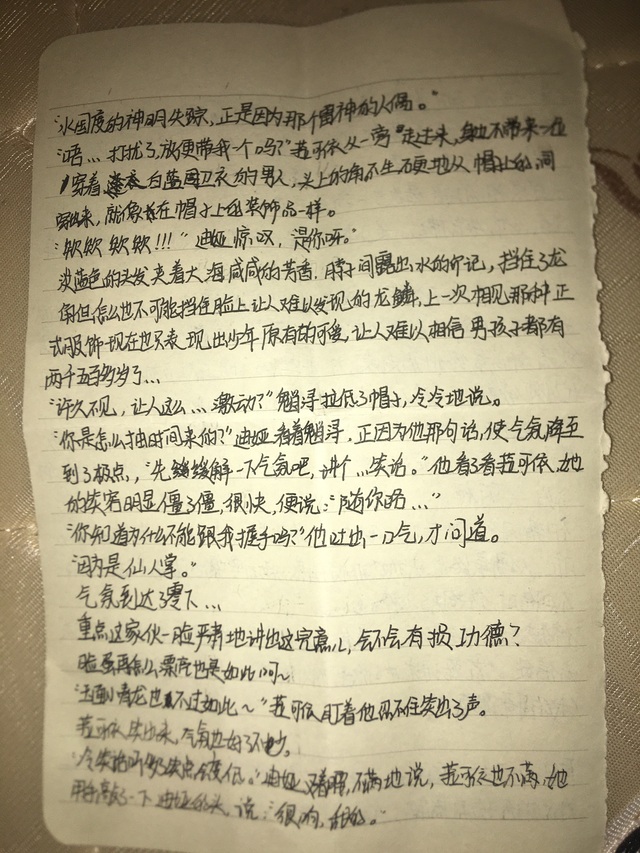 "水国度的神明失踪，正是因为那个雷神的人偶。"
"唔…打扰了，放便带我一个吗？"菈可依从一旁走过来，身边不带来一位
穿着白蓝卫衣的男人，头上的角不生不硬地从帽上的洞
就像长在帽子上的装饰品一样。
"欸欸欸欸!!!"迪娅惊叹，是你呀。"
淡蓝色的头发夹着大海咸咸的芳香，脖子间露出水的印记，挡住了龙
角但怎么也不可能挡住脸上让人难以发现的龙鳞，上一次相见那种正
式服饰现在也只表现出少年原有的可爱，让人难以相信男孩子都有
两千五百多岁了…
"许久不见，让人这么…激动？"魈浔拉低了帽子，冷冷地说。
"你是怎么抽时间来的？"迪娅看着魈浔，正因为他那句话，使气氛降至
到了极点，"先缓解一下气氛吧，讲个…笑话。"他看了看菈可依，她
的笑容明显僵了僵，很快，便说："随你咯…"
"你知道为什么不能跟我握手吗？"他吐出一口气，才问道。
"因为是仙人掌。"
气氛到达了零下…
重点这家伙一脸严肃地讲出这完意儿，会不会有损功德？
脸蛋再怎么漂亮也是如此啊～
"小青龙也不过如此～"菈可依盯着他忍不住笑出了声。
菈可依笑出来，气氛也好了不少。
"冷笑话听多笑点会变低。"迪娅不满地说，菈可依也不满，她
用手敲了一下迪娅的头，说："很响，甜的。"